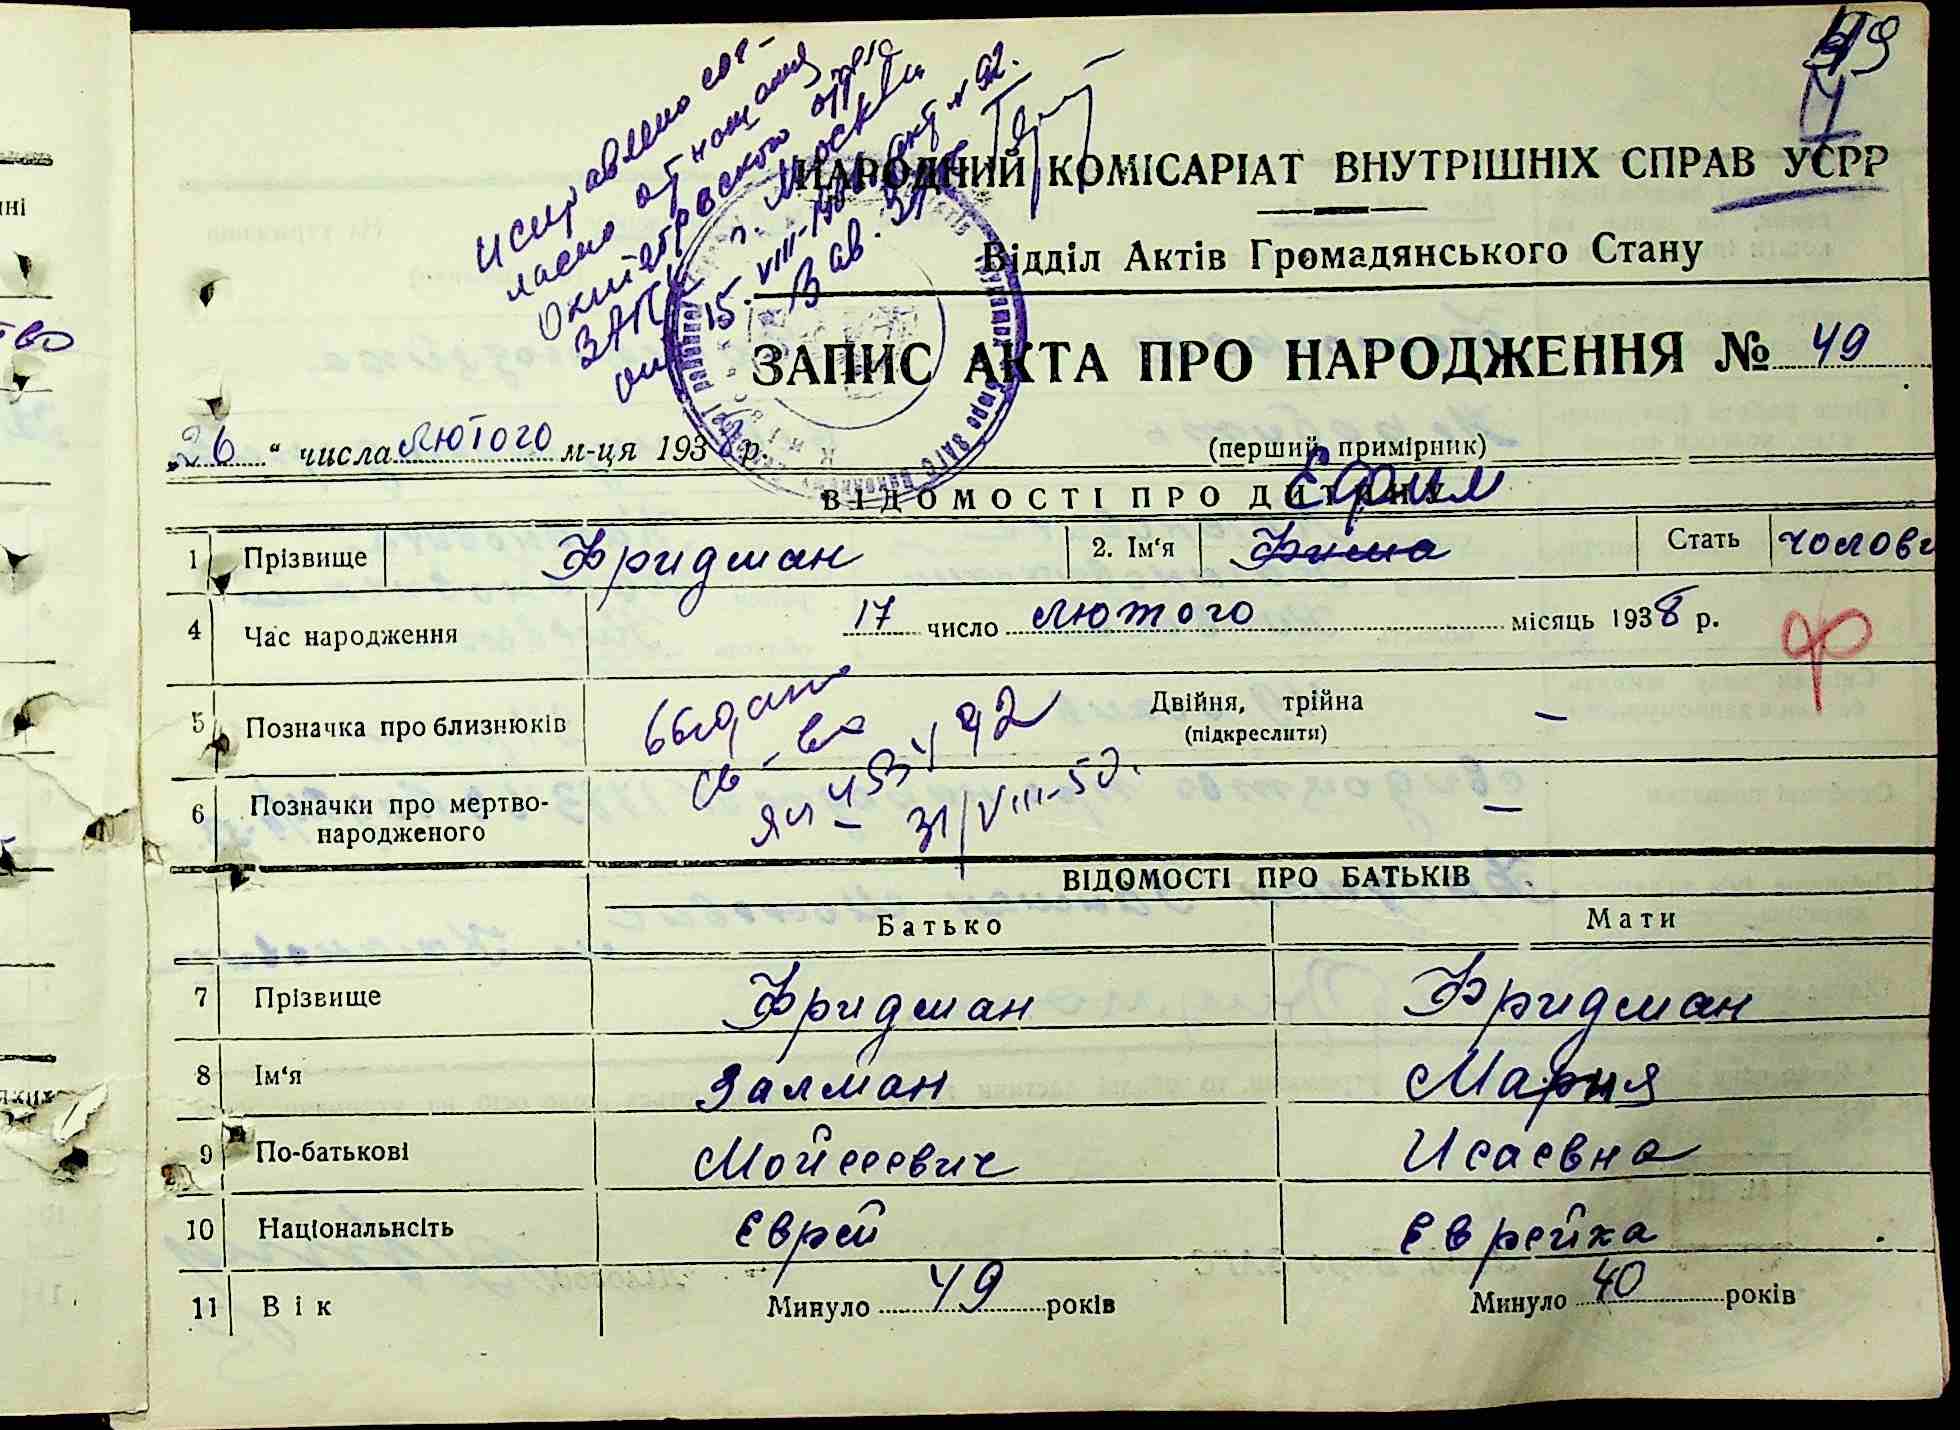 49
исправлено сог-
ласно отношения
Октябрьского отдела
ЗАГС г. Москвы
от 15.VIII-1950 акт № 92.
Зав. ЗАГС
НАРОДНИЙ КОМІСАРІАТ ВНУТРІШНІХ СПРАВ УСРР
Відділ Актів Громадянського Стану
ЗАПИС АКТА ПРО НАРОДЖЕННЯ № 49
„26“ числа лютого м-ця 1938 р.
(перший примірник)
ВІДОМОСТІ ПРО ДИТИНУ
Ефим
1 Прізвище Фридман 2. Ім‘я Фима Стать чолові
4 Час народження 17 число лютого місяць 1938 р.
ф
5 Позначка про близнюків Двійня, трійна –
(підкреслити)
выдано
св-во
6 Позначки про мертво-
народженого –
31/VIII-50.
ВІДОМОСТІ ПРО БАТЬКІВ
Батько Мати
7 Прізвище Фридман Фридман
8 Ім‘я Залман Мария
9 По-батькові Мойсеевич Исаєвна
10 Національнсіть Єврей Єврейка
11 Вік Минуло 49 років Минуло 40 років
ні
тво
яких